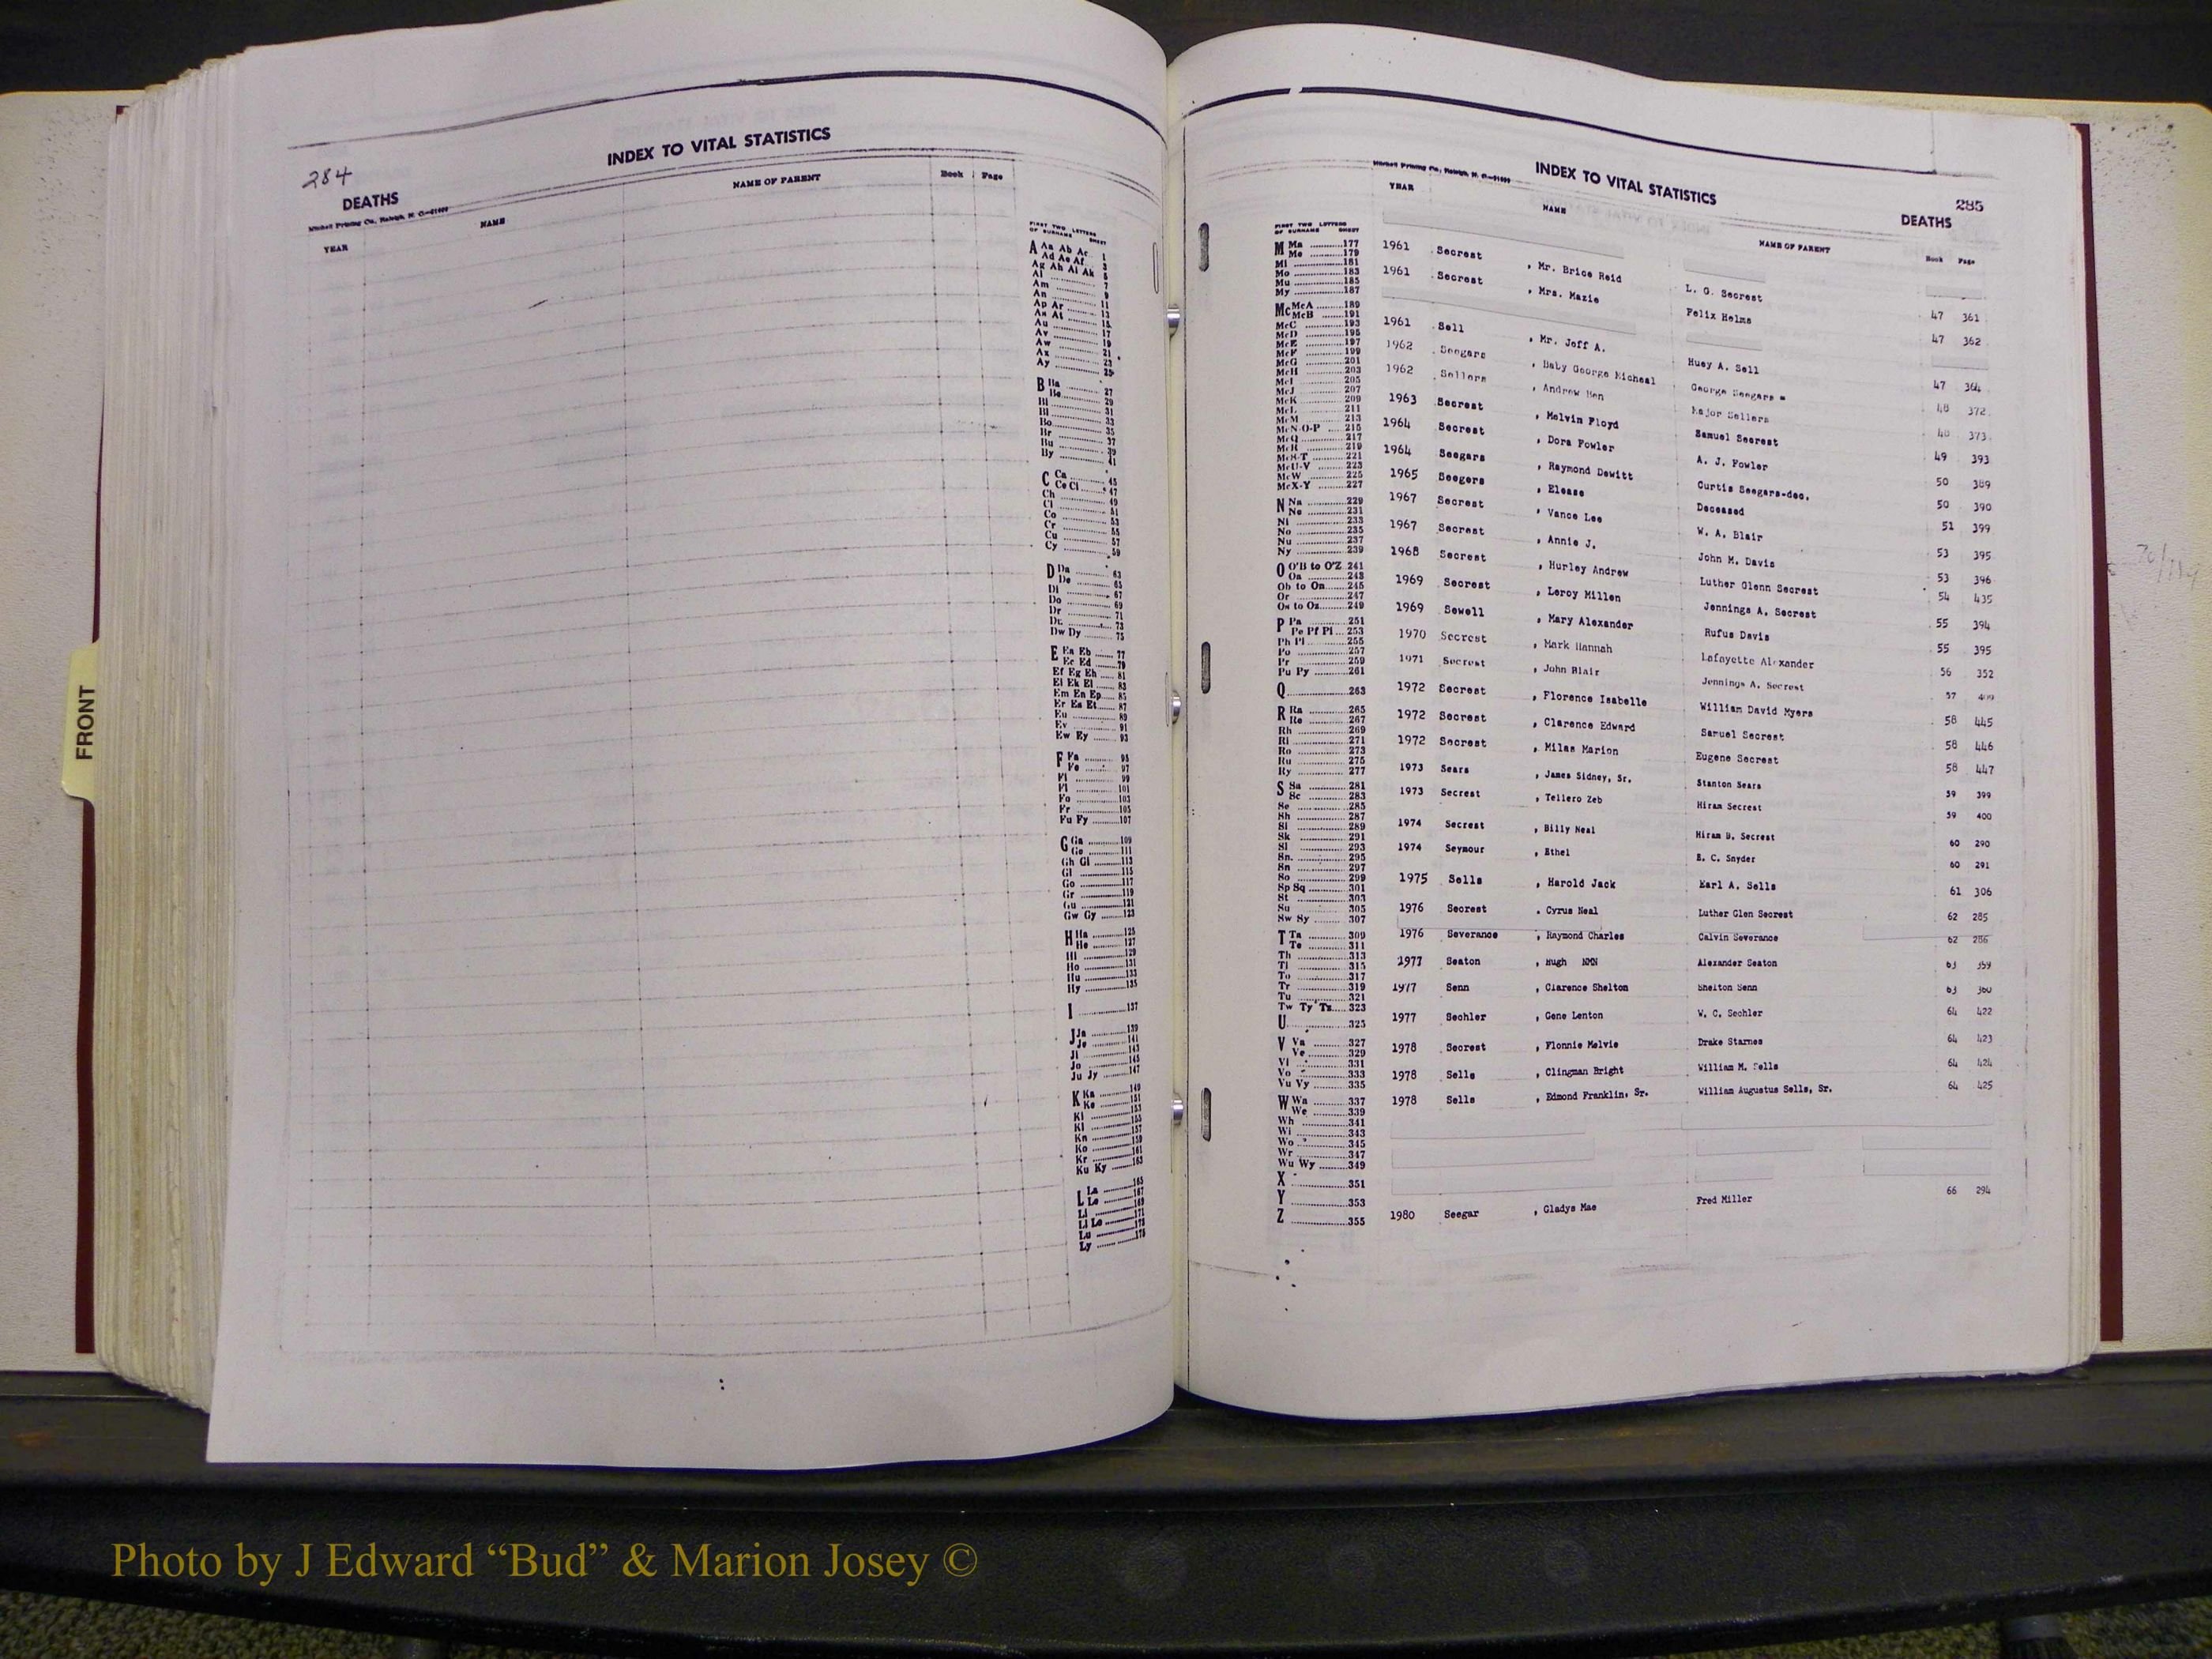 284
INDEX TO VITAL STATISTICS
DEATHS
Mitchell Printing Co., Raleigh, N. C.
YEAR NAME NAME OF PARENT Book Page
FIRST TWO LETTERS
OF SURNAME SHEET
A Aa Ab Ac 1
Ad Ae Af 3
Ag Ah Ai Ak 5
Al 7
Am 9
An 11
Ap Ar 13
As At 15
Au 17
Av 19
Aw 21
Ax 23
Ay 25
B Ba 27
Be 29
Bi 31
Bl 33
Bo 35
Br 37
Bu 39
By 41
C Ca 45
Ce Ci 47
Ch 49
Cl 51
Co 53
Cr 55
Cu 57
Cy 59
D Da 63
De 65
Di 67
Do 69
Dr 71
Du 73
Dw Dy 75
E Ea Eb 77
Ec Ed 79
Ef Eg Eh 81
Ei Ek El 83
Em En Ep 85
Er Es Et 87
Eu 89
Ev 91
Ew Ey 93
F Fa 95
Fe 97
Fi 99
Fl 101
Fo 103
Fr 105
Fu Fy 107
G Ga 109
Ge 111
Gh Gi 113
Gl 115
Go 117
Gr 119
Gu 121
Gw Gy 123
H Ha 125
He 127
Hi 129
Ho 131
Hu 133
Hy 135
I 137
J Ja 139
Je 141
Ji 143
Jo 145
Ju Jy 147
K Ka 149
Ke 151
Ki 153
Kl 155
Kn 157
Ko 159
Kr 161
Ku Ky 163
L La 165
Le 167
Li 169
Ll Lo 171
Lu 173
Ly 175
FRONT
Mitchell Printing Co., Raleigh, N. C.
INDEX TO VITAL STATISTICS
285
DEATHS
YEAR NAME NAME OF PARENT Book Page
FIRST TWO LETTERS
OF SURNAME SHEET
M Ma 177
Me 179
Mi 181
Mo 183
Mu 185
My 187
Mc McA 189
McB 191
McC 193
McD 195
McE 197
McF 199
McG 201
McH 203
McI 205
McJ 207
McK 209
McL 211
McM 213
McN-O-P 215
McQ 217
McR 219
McS-T 221
McU-V 223
McW 225
McX-Y 227
N Na 229
Ne 231
Ni 233
No 235
Nu 237
Ny 239
O O'B to O'Z 241
Oa 243
Ob to On 245
Or 247
Os to Oz 249
P Pa 251
Pe Pf Pi 253
Ph Pl 255
Po 257
Pr 259
Pu Py 261
Q 263
R Ra 265
Re 267
Rh 269
Ri 271
Ro 273
Ru 275
Ry 277
S Sa 281
Sc 283
Se 285
Sh 287
Si 289
Sk 291
Sl 293
Sm 295
Sn 297
So 299
Sp Sq 301
St 303
Su 305
Sw Sy 307
T Ta 309
Te 311
Th 313
Ti 315
To 317
Tr 319
Tu 321
Tw Ty Tz 323
U 325
V Va 327
Ve 329
Vi 331
Vo 333
Vu Vy 335
W Wa 337
We 339
Wh 341
Wi 343
Wo 345
Wr 347
Wu Wy 349
X 351
Y 353
Z 355
1961 Secrest , Mr. Brice Reid L. G. Secrest 47 361
1961 Secrest , Mrs. Mazie Felix Helms 47 362
1961 Sell , Mr. Jeff A. Huey A. Sell 47 364
1962 Seegars , Baby George Micheal George Seegars 48 372
1962 Sellers , Andrew Ben Major Sellers 48 373
1963 Secrest , Melvin Floyd Samuel Secrest 49 393
1964 Secrest , Dora Fowler A. J. Fowler 50 389
1964 Seegars , Raymond Dewitt Curtis Seegars-dec. 50 390
1965 Seegers , Elease Deceased 51 399
1967 Secrest , Vance Lee W. A. Blair 53 395
1967 Secrest , Annie J. John M. Davis 53 396
1968 Secrest , Hurley Andrew Luther Glenn Secrest 54 435
1969 Secrest , Leroy Millen Jennings A. Secrest 55 394
1969 Sewell , Mary Alexander Rufus Davis 55 395
1970 Secrest , Mark Hannah Lafayette Alexander 56 352
1971 Secrest , John Blair Jennings A. Secrest 57 409
1972 Secrest , Florence Isabelle William David Myers 58 445
1972 Secrest , Clarence Edward Samuel Secrest 58 446
1972 Secrest , Milas Marion Eugene Secrest 58 447
1973 Sears , James Sidney, Sr. Stanton Sears 59 399
1973 Secrest , Tellero Zeb Hiram Secrest 59 400
1974 Secrest , Billy Neal Hiram B. Secrest 60 290
1974 Seymour , Ethel E. C. Snyder 60 291
1975 Sells , Harold Jack Earl A. Sells 61 306
1976 Secrest , Cyrus Neal Luther Glen Secrest 62 285
1976 Severance , Raymond Charles Calvin Severance 62 286
1977 Seaton , Hugh NMN Alexander Seaton 63 359
1977 Senn , Clarence Shelton Shelton Senn 63 360
1977 Sechler , Gene Lenton W. C. Sechler 64 422
1978 Secrest , Flonnie Melvie Drake Starnes 64 423
1978 Sells , Clingman Bright William M. Sells 64 424
1978 Sells , Edmond Franklin, Sr. William Augustus Sells, Sr. 64 425
1980 Seegar , Gladys Mae Fred Miller 66 294
Photo by J Edward “Bud” & Marion Josey ©